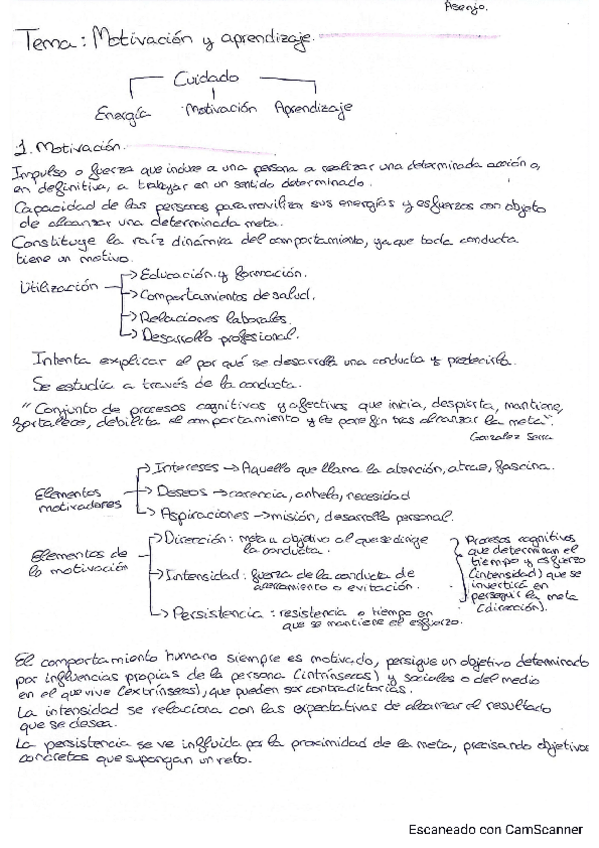 Asenjo.
Tema: Motivación y aprendizaje.
Cuidado
Energía Motivación Aprendizaje
1. Motivación.
Impulso o fuerza que induce a una persona a realizar una determinada acción o,
en definitiva, a trabajar en un sentido determinado.
Capacidad de las personas para movilizar sus energías y esfuerzos con objeto
de alcanzar una determinada meta.
Constituye la raíz dinámica del comportamiento, ya que toda conducta
tiene un motivo.
Utilización → Educación y formación.
→ Comportamientos de salud.
→ Relaciones laborales.
→ Desarrollo profesional.
Intenta explicar el por qué se desarrolla una conducta y predecirla.
Se estudia a través de la conducta.
"Conjunto de procesos cognitivos y afectivos que inicia, despierta, mantiene,
fortalece, debilita el comportamiento y le pone fin tras alcanzar la meta".
Gonzalez Serra
Elementos motivadores → Intereses → Aquello que llama la atención, atrae, fascina.
→ Deseos → carencia, anhelo, necesidad
→ Aspiraciones → misión, desarrollo personal.
Elementos de la motivación → Dirección: meta u objetivo al que se dirige
la conducta.
→ Intensidad: fuerza de la conducta de
acercamiento o evitación.
→ Persistencia: resistencia o tiempo en
que se mantiene el esfuerzo.
Procesos cognitivos
que determinan el
tiempo y esfuerzo
(intensidad) que se
invertirá en
perseguir la meta
(dirección).
El comportamiento humano siempre es motivado, persigue un objetivo determinado
por influencias propias de la persona (intrínsecas) y sociales o del medio
en el que vive (extrínsecas), que pueden ser contradictorias.
La intensidad se relaciona con las expectativas de alcanzar el resultado
que se desea.
La persistencia se ve influida por la proximidad de la meta, precisando objetivos
concretos que supongan un reto.
Escaneado con CamScanner